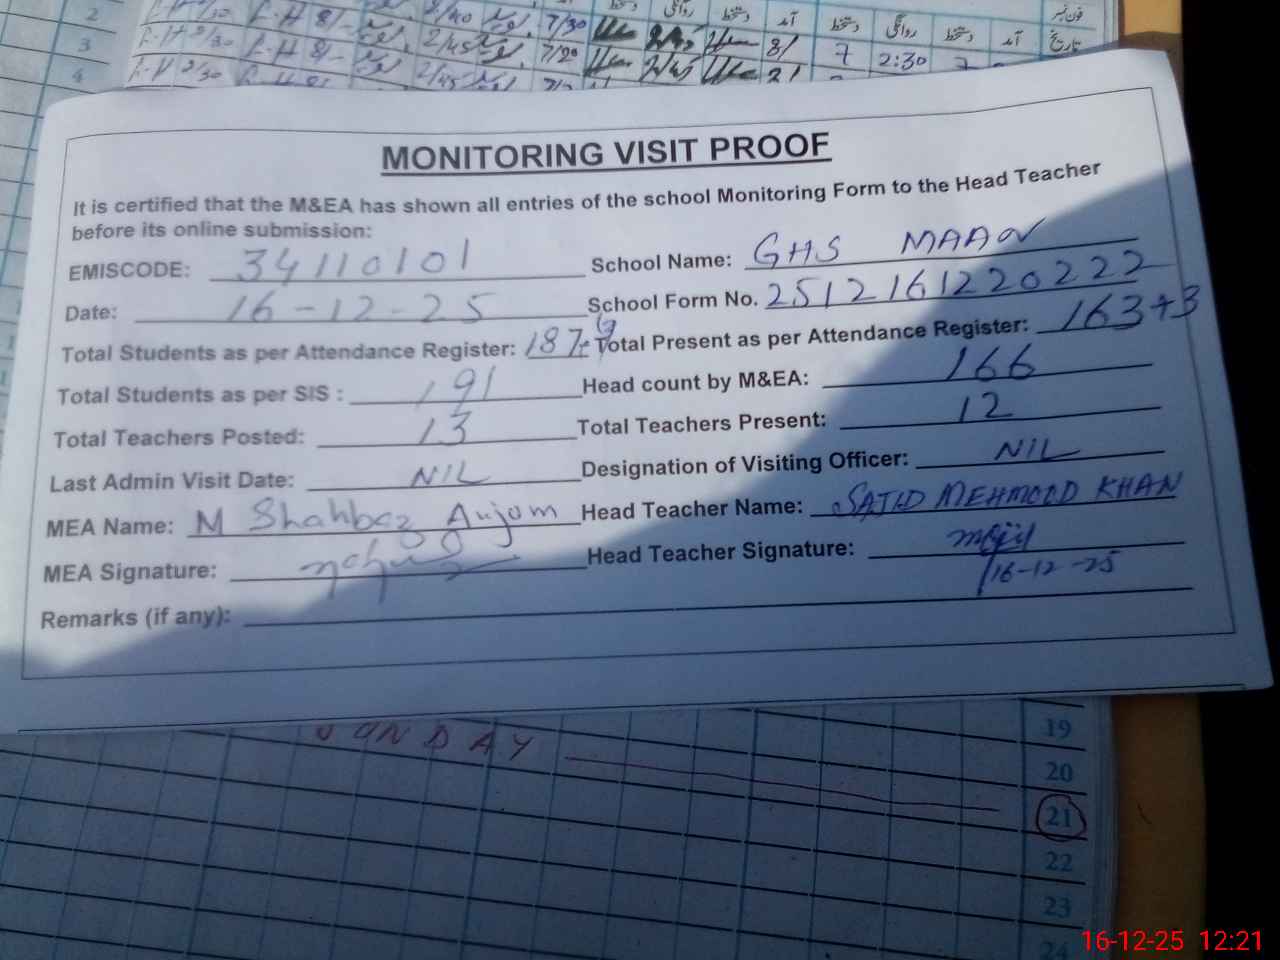 2
3
4
7/30
دستخط روانگی دستخط آمد دستخط روانگی دستخط آمد
فون نمبر
تاریخ
2/45 7/20 8/ 7 2:30 7
MONITORING VISIT PROOF
It is certified that the M&EA has shown all entries of the school Monitoring Form to the Head Teacher
before its online submission:
EMISCODE: 34110101 School Name: GHS MAAN
Date: 16-12-25 School Form No. 2512161220222
Total Students as per Attendance Register: 187 Total Present as per Attendance Register: 163+3
Total Students as per SIS : 191 Head count by M&EA: 166
Total Teachers Posted: 13 Total Teachers Present: 12
Last Admin Visit Date: NIL Designation of Visiting Officer: NIL
MEA Name: M Shahbaz Anjum Head Teacher Name: SAJID MEHMOOD KHAN
MEA Signature: Head Teacher Signature:
16-12-25
Remarks (if any):
UNDAY
19
20
21
22
23
24
16-12-25 12:21